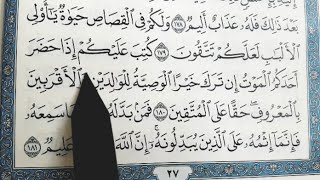 بَعْدَ ذَٰلِكَ فَلَهُۥ عَذَابٌ أَلِيمٌ ١٧٨ وَلَكُمْ فِى ٱلْقِصَاصِ حَيَوٰةٌ يَٰٓأُو۟لِى
ٱلْأَلْبَٰبِ لَعَلَّكُمْ تَتَّقُونَ ١٧٩ كُتِبَ عَلَيْكُمْ إِذَا حَضَرَ
أَحَدَكُمُ ٱلْمَوْتُ إِن تَرَكَ خَيْرًا ٱلْوَصِيَّةُ لِلْوَٰلِدَيْنِ وَٱلْأَقْرَبِينَ
بِٱلْمَعْرُوفِ حَقًّا عَلَى ٱلْمُتَّقِينَ ١٨٠ فَمَنۢ بَدَّلَهُۥ سَمِعَهُۥ
فَإِنَّمَآ إِثْمُهُۥ عَلَى ٱلَّذِينَ يُبَدِّلُونَهُۥٓ إِنَّ ٱللَّهَ عَلِيمٌ ١٨١
٢٧